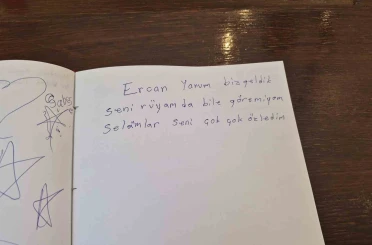 Ercan Yarım biz geldik
seni rüyamda bile göremiyom
Selâmlar seni çok çok özledim